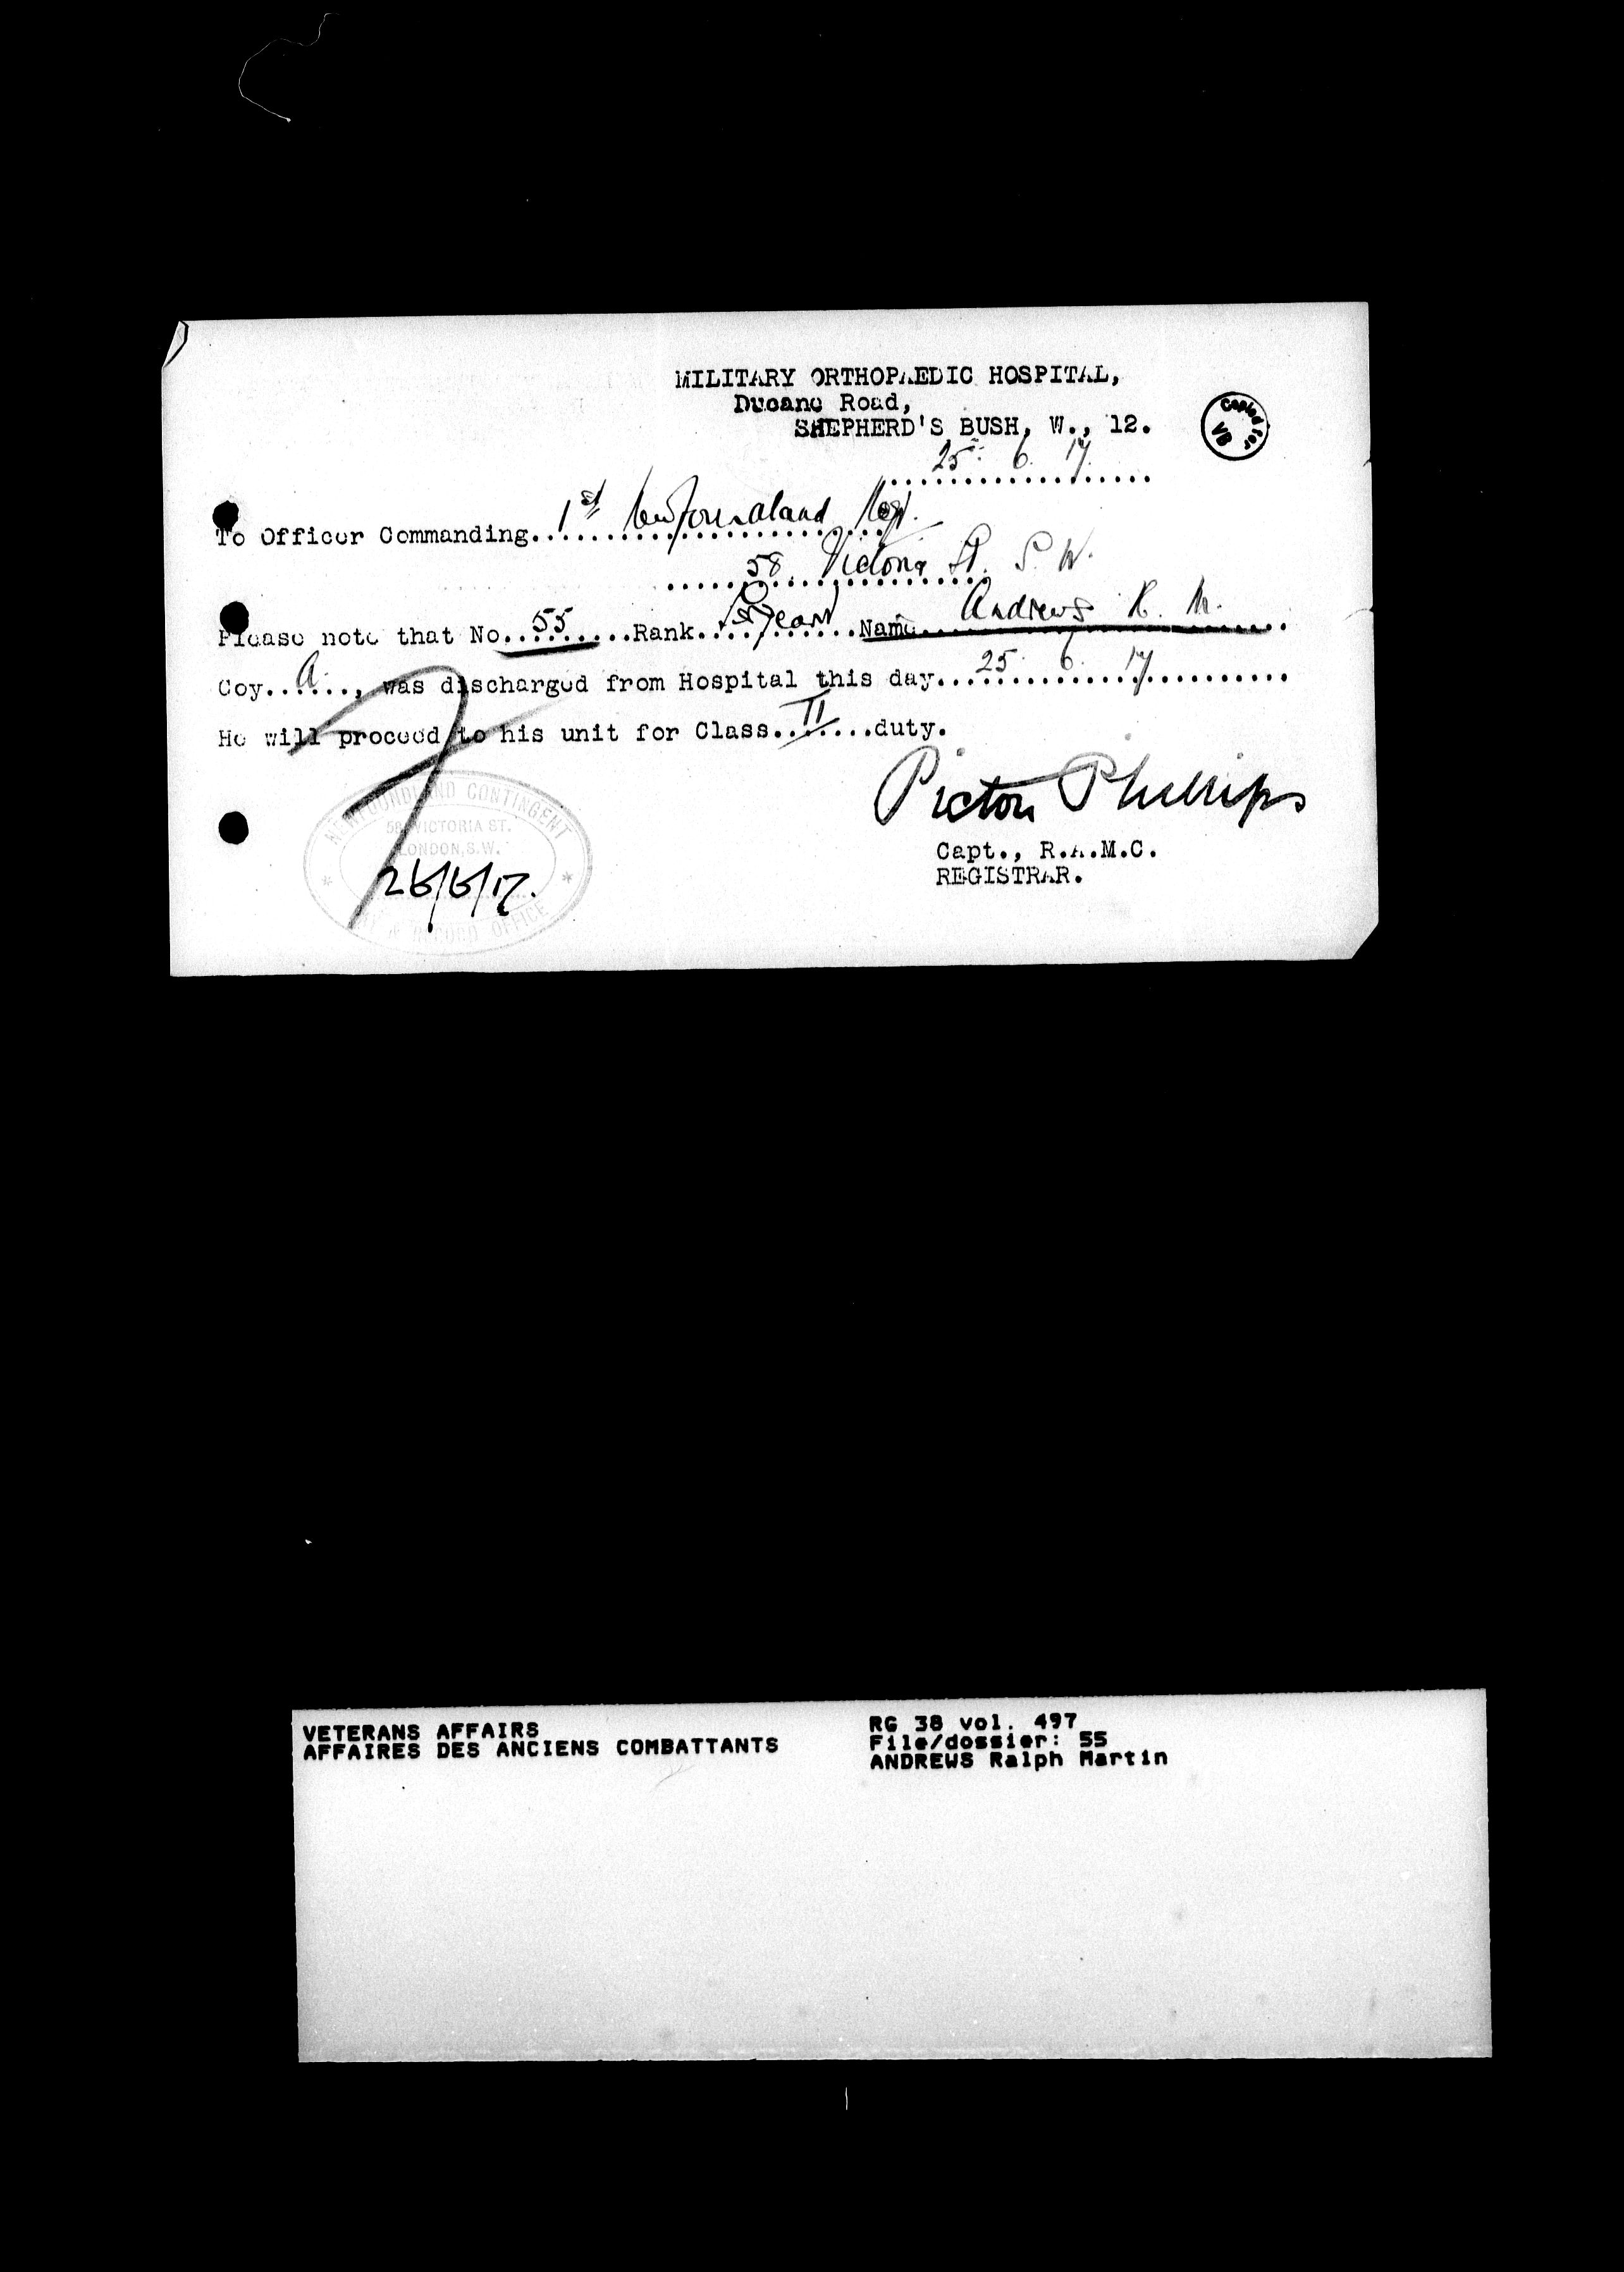 MILITARY ORTHOPAEDIC HOSPITAL,
Ducane Road,
SHEPHERD'S BUSH, W., 12.
Copied for
VB
25. 6. 17.
To Officer Commanding..1st Newfoundland Regt.
58 Victoria St. S. W.
Please note that No..55.....Rank............Name...Andrews R. M.
Coy..A...., was discharged from Hospital this day...25. 6. 17..........
He will proceed to his unit for Class..II...duty.
Picton Phillips
Capt., R.A.M.C.
REGISTRAR.
NEWFOUNDLAND CONTINGENT
58, VICTORIA ST.
LONDON, S.W.
26/6/17.
& RECORD OFFICE
VETERANS AFFAIRS
AFFAIRES DES ANCIENS COMBATTANTS
RG 38 vol. 497
File/dossier: 55
ANDREWS Ralph Martin